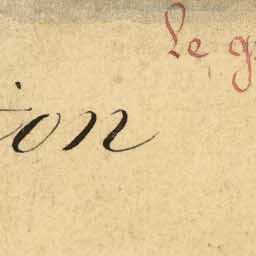 le g
ion